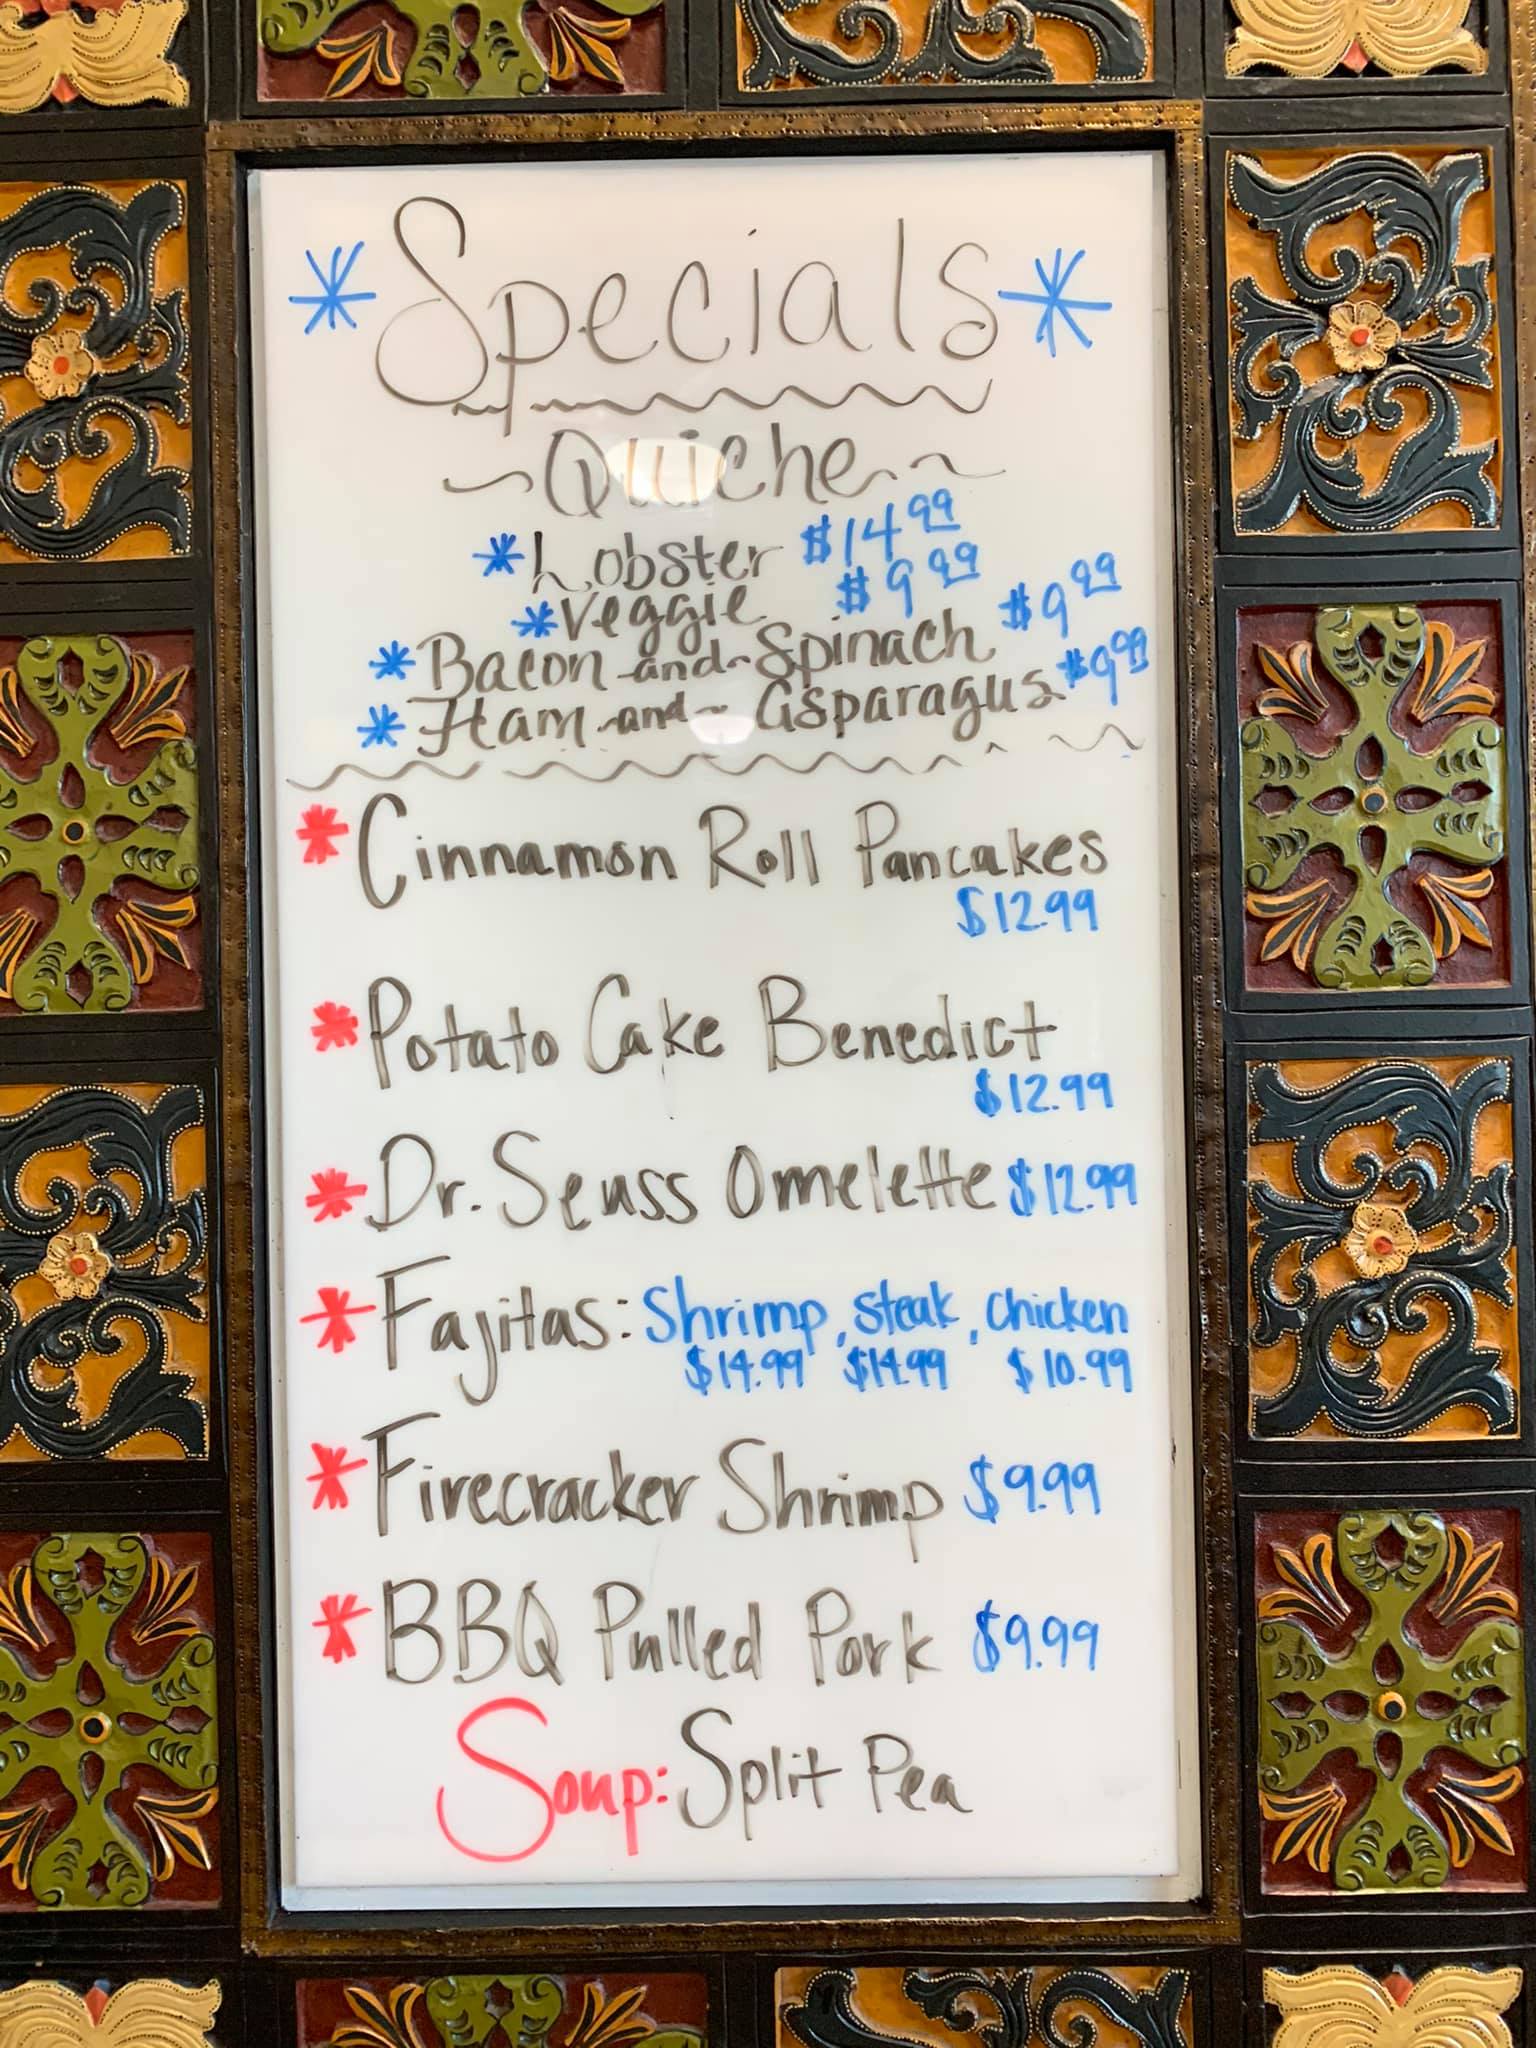 * Specials *
~ Quiche ~
* Lobster $14.99
* Veggie $9.99
* Bacon-and-Spinach $9.99
* Ham-and-Asparagus $9.99
* Cinnamon Roll Pancakes
$12.99
* Potato Cake Benedict
$12.99
* Dr. Seuss Omelette $12.99
* Fajitas: Shrimp, steak, chicken
$14.99 $14.99 $10.99
* Firecracker Shrimp $9.99
* BBQ Pulled Pork $9.99
Soup: Split Pea